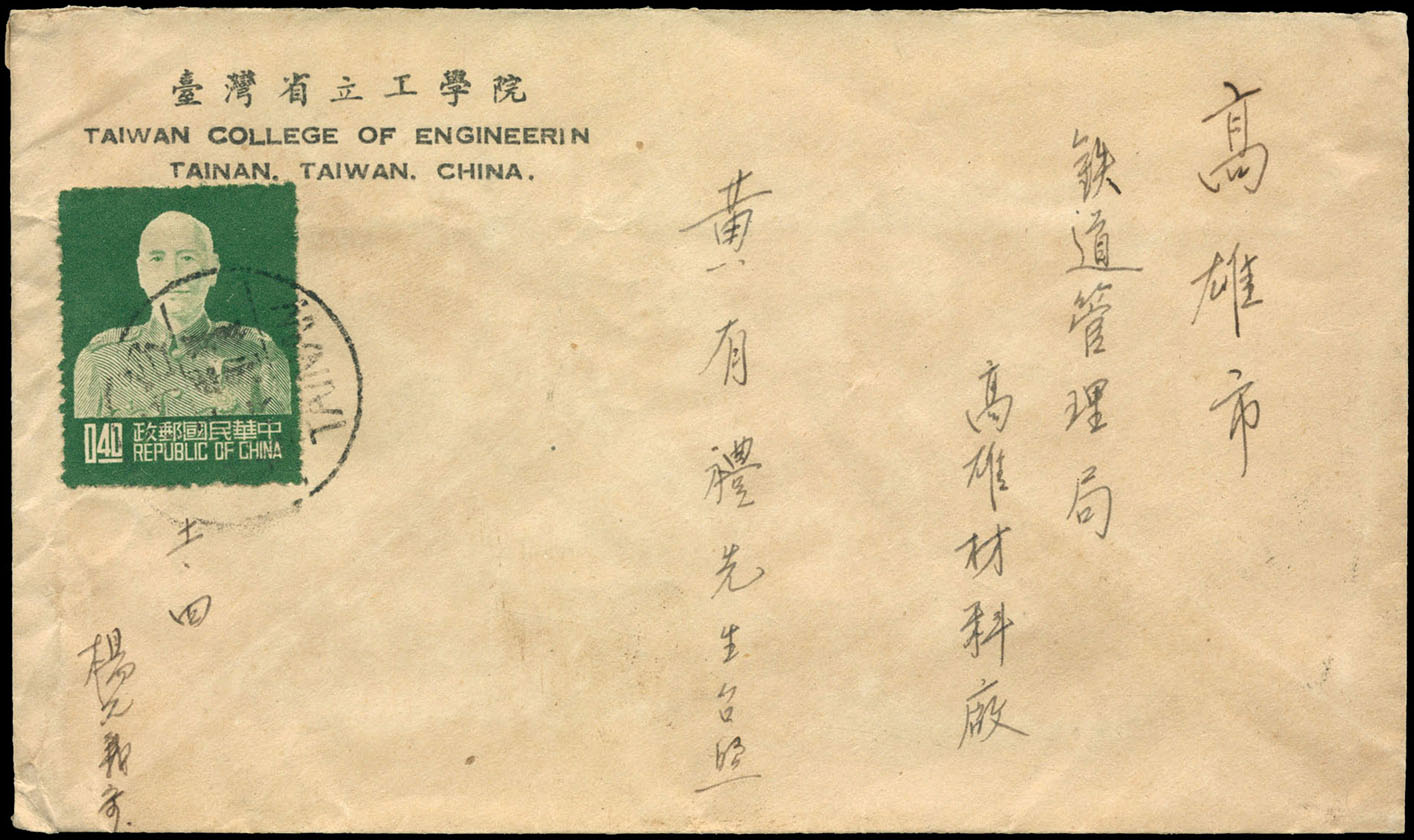 臺灣省立工學院
TAIWAN COLLEGE OF ENGINEERIN
TAINAN, TAIWAN, CHINA.
高雄市
鉄道管理局
高雄材料廠
黃有禮先生台照
十一、四
楊
政郵國民華中
0.40
REPUBLIC OF CHINA
TAINAN